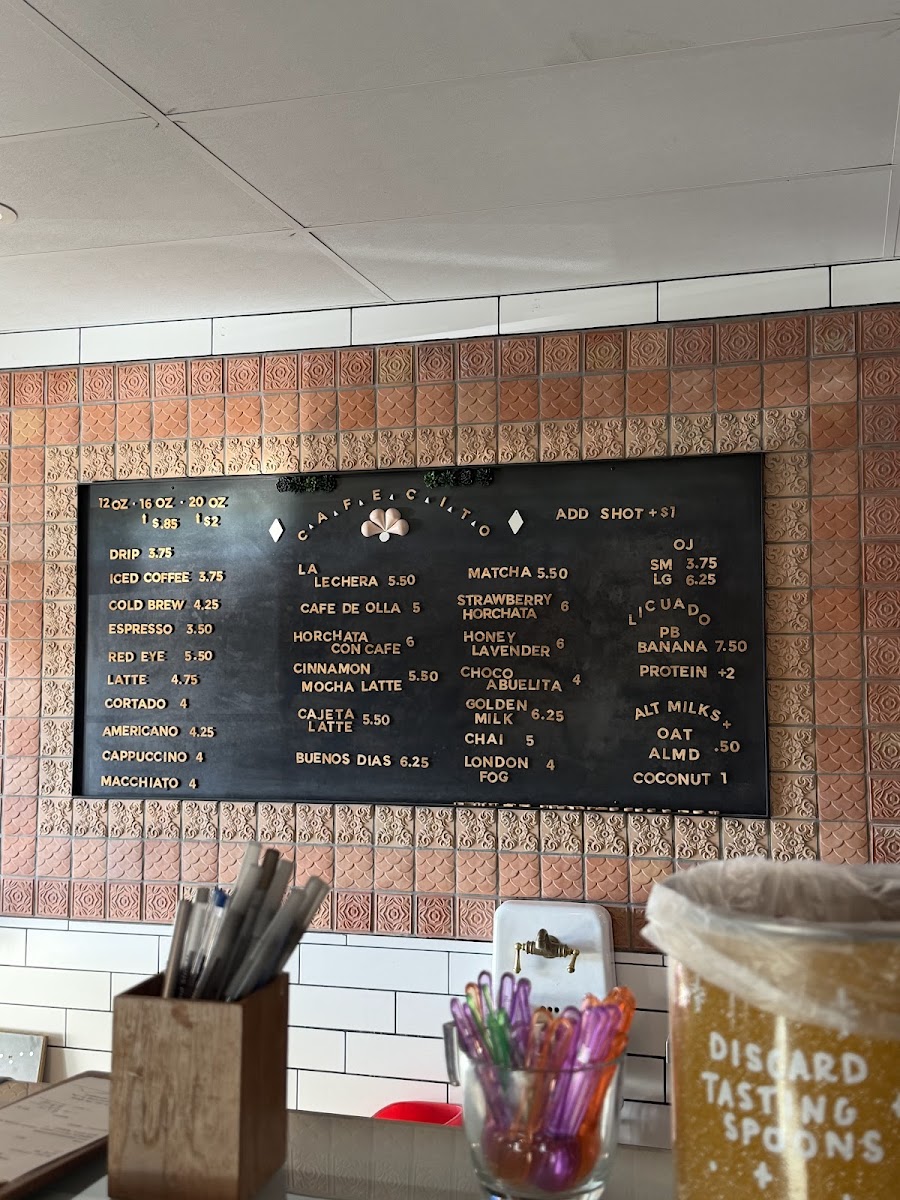 12 OZ · 16 OZ · 20 OZ
$.85 $2
DRIP 3.75
ICED COFFEE 3.75
COLD BREW 4.25
ESPRESSO 3.50
RED EYE 5.50
LATTE 4.75
CORTADO 4
AMERICANO 4.25
CAPPUCCINO 4
MACCHIATO 4
CAFECITO
LA
LECHERA 5.50
CAFE DE OLLA 5
HORCHATA
CON CAFE 6
CINNAMON
MOCHA LATTE 5.50
CAJETA
LATTE 5.50
BUENOS DIAS 6.25
MATCHA 5.50
STRAWBERRY
HORCHATA 6
HONEY
LAVENDER 6
CHOCO
ABUELITA 4
GOLDEN
MILK 6.25
CHAI 5
LONDON
FOG 4
ADD SHOT +$1
OJ
SM 3.75
LG 6.25
LICUADO
PB
BANANA 7.50
PROTEIN +2
ALT MILKS+
OAT
ALMD .50
COCONUT 1
DISCARD
TASTING
SPOONS